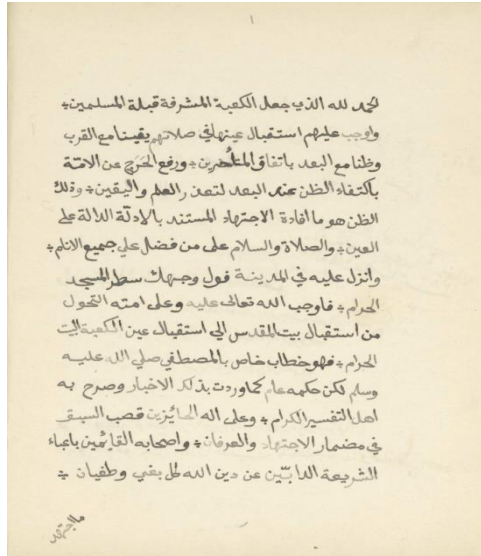 ١
الحمد لله الذي جعل الكعبة المشرفة قبلة المسلمين ؛
واوجب عليهم استقبال عينها في صلاتهم يقينا مع القرب
وظنا مع البعد باتفاق المتأخرين ؛ ورفع الحرج عن الامة
باكتفاء الظن عند البعد لتعذر العلم واليقين ؛ وذلك
الظن هو ما افادة الاجتهاد المستند بالادلة الدالة على
العين ؛ والصلاة والسلام على من فضل علي جميع الانام ؛
وانزل عليه في المدينة فول وجهك سطر المسجد
الحرام ؛ فاوجب الله تعالى عليه وعلى امته التحول
من استقبال بيت المقدس الي استقبال عين الكعبة البيت
الحرام ؛ فهو خطاب خاص بالمصطفي صلي الله عليه
وسلم لكن حكمه عام كما وردت بذلك الاخبار وصرح به
اهل التفسير الكرام ؛ وعلى اله الحائزين قصب السبق
في مضمار الاجتهاد والعرفان ؛ واصحابه القائمين باعباء
الشريعة الذابّين عن دين الله كل بغي وطغيان ؛
ما اجتهد